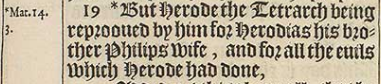 *Mat.14.
3.
19 *But Herode the Tetrarch being
reprooued by him for Herodias his bro-
ther Philips wife, and for all the euils
which Herode had done,